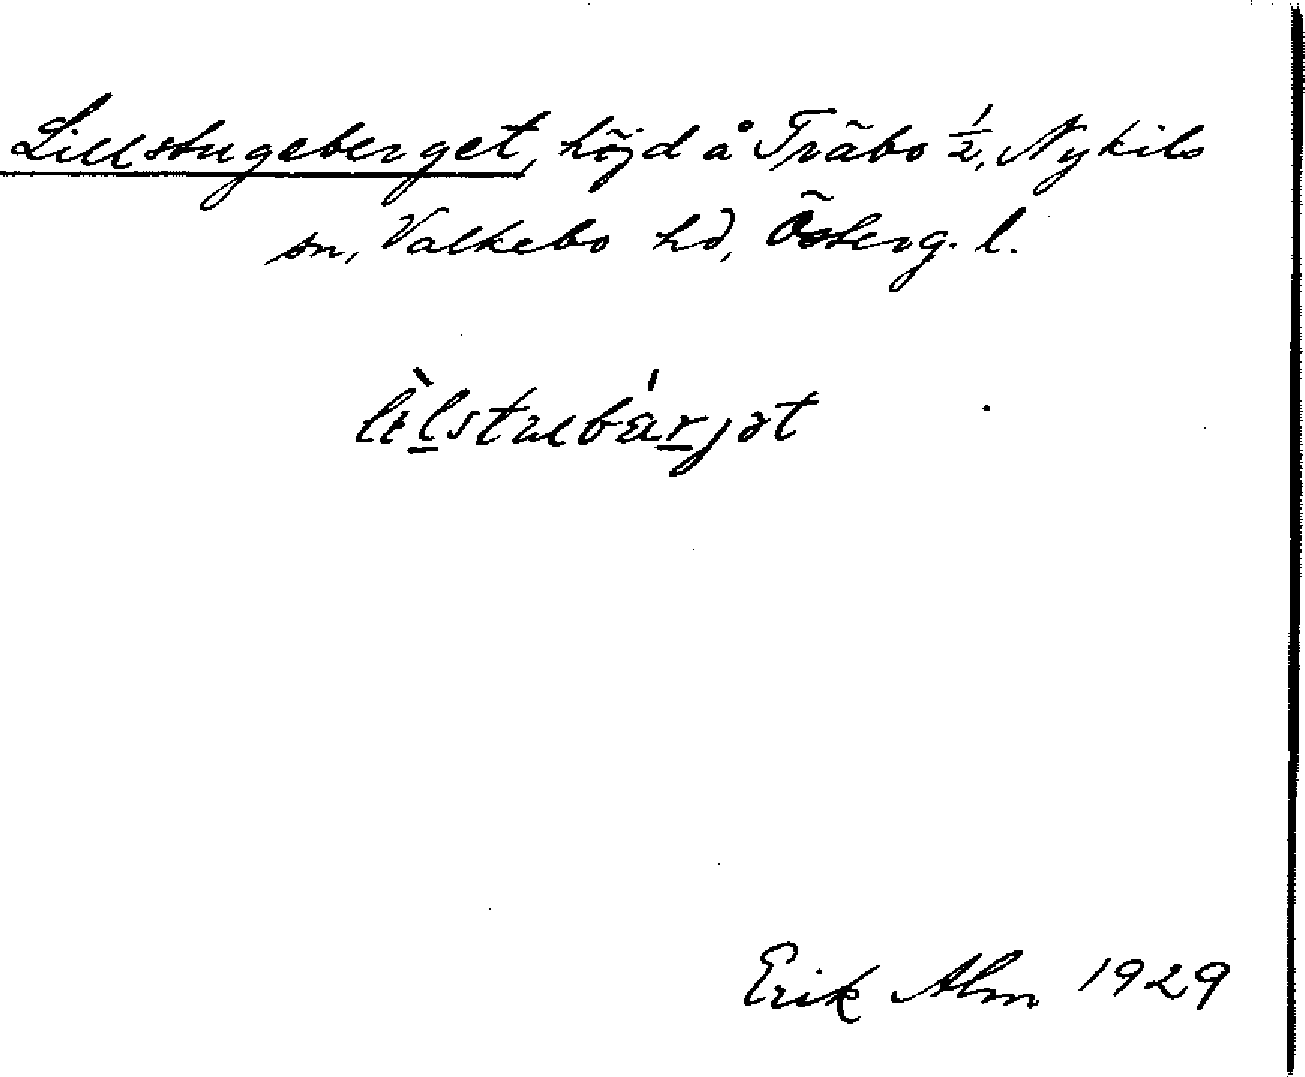 Lillstugeberget, höjd å Träbo ½, Nykils
sn, Valkebo hd, Österg. l.
Erik Alm 1929